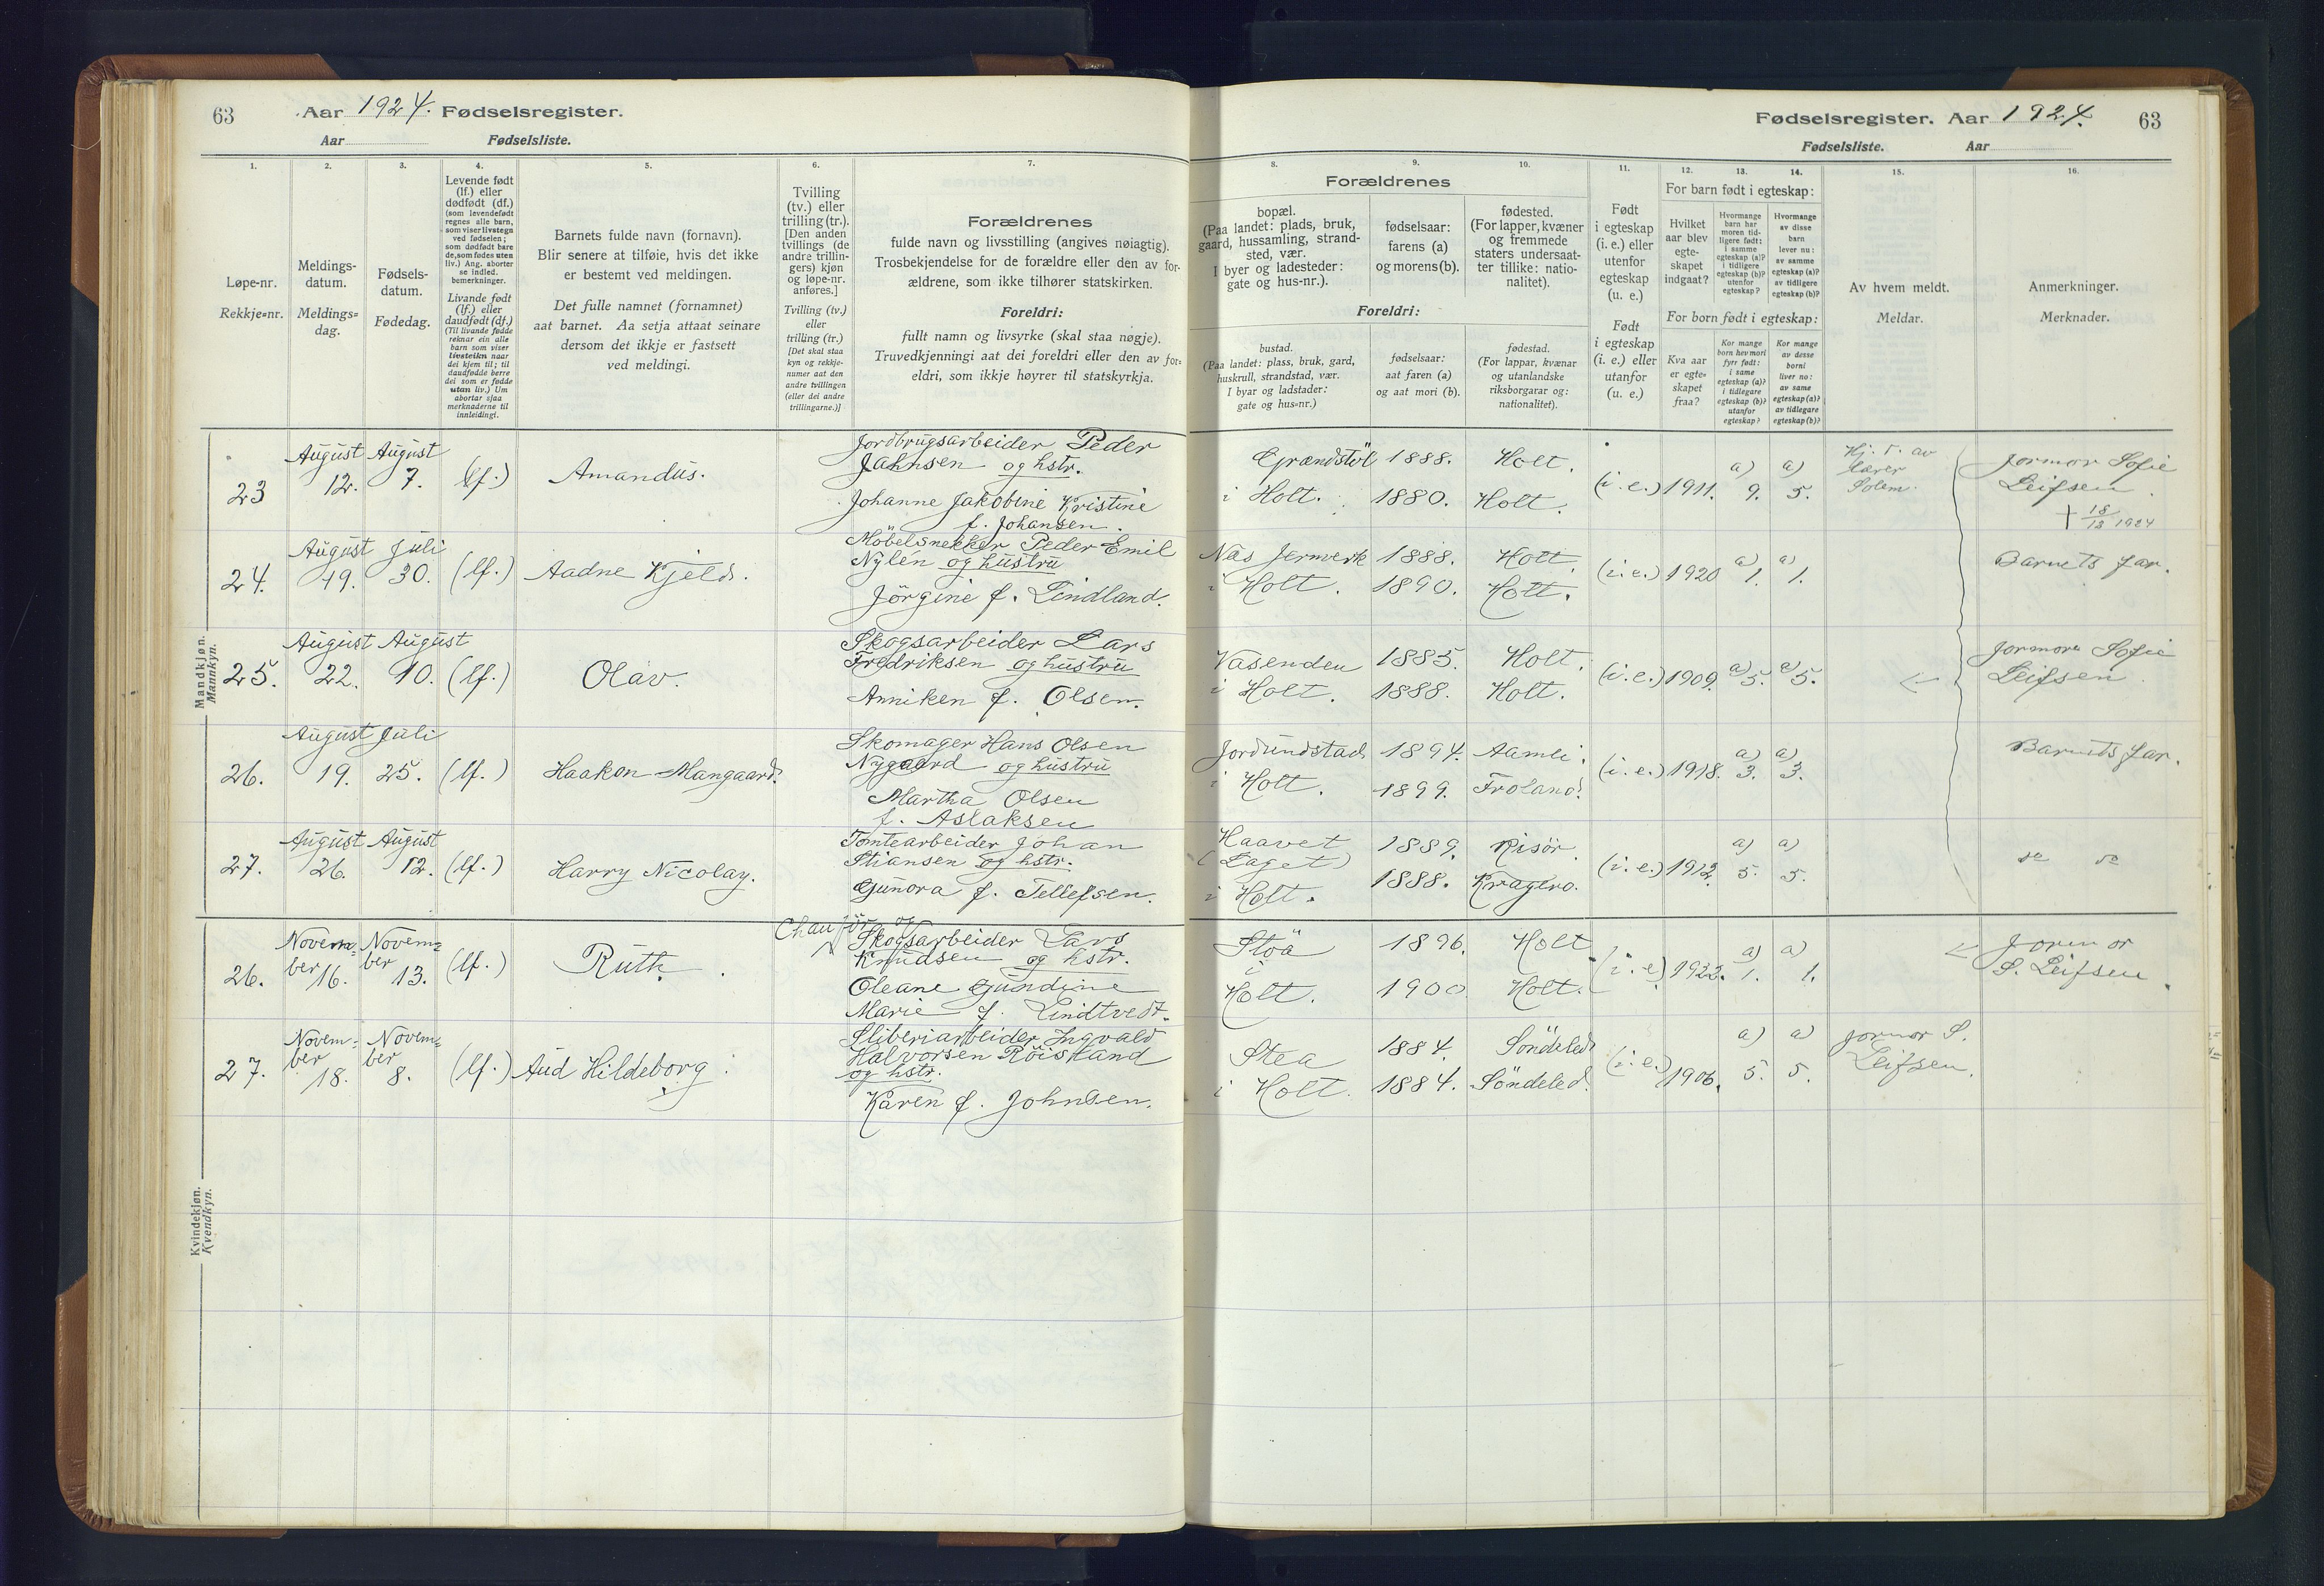 63 Aar 1924. Fødselsregister.
Aar Fødselsliste.
1. 2. 3. 4. 5. 6. 7.
Løpe-nr.
Rekkje=nr.
Meldings-
datum.
Meldings=
dag.
Fødsels-
datum.
Fødedag.
Levende født
(lf.) eller
dødfødt (df.)
(som levendefødt
regnes alle barn,
som viser livstegn
ved fødselen;
som dødfødt bare
de, som fødes uten
liv.) Ang. aborter
se indled.
bemerkninger.
Livande født
(lf.) eller
daudfødt (df.)
(Til livande fødde
reknar ein alle
barn som viser
livsteikn naar
dei kjem til; til
daudfødde berre
dei som er fødde
utan liv.) Um
abortar sjaa
merknaderne til
innleidingi.
Barnets fulde navn (fornavn).
Blir senere at tilføie, hvis det ikke
er bestemt ved meldingen.
Det fulle namnet (fornamnet)
aat barnet. Aa setja attaat seinare
dersom det ikkje er fastsett
ved meldingi.
Tvilling
(tv.) eller
trilling (tr.).
[Den anden
tvillings (de
andre trillin-
gers) kjøn
og løpe-nr.
anføres.]
Tvilling (tv.)
eller
trilling (tr.)
[Det skal staa
kyn og rekkje-
numer aat den
andre tvillingen
(eller dei andre
trillingarne.)]
Forældrenes
fulde navn og livsstilling (angives nøiagtig).
Trosbekjendelse for de forældre eller den av for-
ældrene, som ikke tilhører statskirken.
Foreldri:
fullt namn og livsyrke (skal staa nøgje).
Truvedkjenningi aat dei foreldri eller den av for=
eldri, som ikkje høyrer til statskyrkja.
Mandkjøn.
Mannkyn.
23 August 12. August 7. (lf.) Amandus.
Jordbrugsarbeider Peder
Jahnsen og hstr.
Johanne Jakobine Kristine
f. Johansen.
24. August 19. Juli 30. (lf.) Aadne Kjeld.
Möbelsnekker Peder Emil
Nylén og hustru
Jörgine f. Lindland.
25. August 22. August 10. (lf.) Olav.
Skogsarbeider Lars
Fredriksen og hustru
Anniken f. Olsen.
26. August 19. Juli 25. (lf.) Haakon Mangaard.
Skomager Hans Olsen
Nygaard og hustru
Martha Olsen
f. Aslaksen
27. August 26. August 12. (lf.) Harry Nicolay.
Tomtearbeider Johan
Stiansen og hstr.
Gunora f. Tellefsen.
Kvindekjøn.
Kvendkyn.
26. Novem=ber 16. Novem=ber 13. (lf.) Ruth.
Chaufför og
Skogsarbeider Lars
Knudsen og hstr.
Oleane Gundine
Marie f. Lindtvedt.
27. Novem=ber 18. Novem=ber 8. (lf.) Aud Hildeborg
Sliberiarbeider Ingvald
Halvorsen Röisland
og hstr.
Karen f. Johnsen.
Fødselsregister. Aar 1924. 63
Fødselsliste. Aar
8. 9. 10. 11. 12. 13. 14. 15. 16.
Forældrenes
bopæl.
(Paa landet: plads, bruk,
gaard, hussamling, strand-
sted, vær.
I byer og ladesteder:
gate og hus-nr.).
fødselsaar:
farens (a)
og morens (b).
fødested.
(For lapper, kvæner
og fremmede
staters undersaat-
ter tillike: natio-
nalitet).
Foreldri:
bustad.
(Paa landet: plass, bruk, gard,
huskrull, strandstad, vær.
I byar og ladstader:
gate og hus-nr.)
fødselsaar:
aat faren (a)
og aat mori (b).
fødestad.
(For lappar, kvænar
og utanlandske
riksborgarar og:
nationalitet).
Født
i egteskap
(i. e.) eller
utenfor
egteskap
(u. e.)
Født
i egteskap
(i. e.) eller
utanfor
(u. e.)
For barn født i egteskap:
Hvilket
aar blev
egte-
skapet
indgaat?
Hvormange
barn har
moren tid-
ligere født:
i samme
egteskap (a)?
i tidligere
egteskap (b)?
utenfor
egteskap?
Hvormange
av disse
barn
lever nu:
av samme
egteskap (a)?
av tidligere
egteskap (b)?
For born født i egteskap:
Kva aar
er egte-
skapet
fraa?
Kor mange
born hev mori
fyrr født:
i same
egteskap (a)?
i tidlegare
egteskap (b)?
utanfor
egteskap?
Kor mange
av desse
borni
liver no:
av same
egteskap (a)?
av tidlegare
egteskap (b)?
Av hvem meldt.
Meldar.
Anmerkninger.
Merknader.
Grændstöl 1888. Holt. (i. e.) 1911. a) 9. a) 5.
i Holt. 1880. Holt.
Hj. d. av
Lærer
Solem.
Jormor Sofie
Leifsen
† 18/12 1924
Næs Jernverk 1888. Holt. (i. e.) 1920 a) 1. a) 1. Barnets far.
i Holt. 1890. Holt.
Vasenden 1885. Holt. (i. e.) 1909. a) 5. a) 5.
i Holt. 1888. Holt.
Jormor Sofie
Leifsen
Jordundstad 1894. Aamli. (i. e.) 1918. a) 3. a) 3. Barnets far.
i Holt. 1899. Froland.
Haavet 1889. Risör. (i. e.) 1912. a) 5. a) 5.
(Laget) i Holt. 1888. Kragerø.
Stöa 1896. Holt (i. e.) 1922. a) 1. a) 1.
i Holt. 1900. Holt.
Jormor
S. Leifsen
Stea 1884. Söndeled (i. e.) 1906. a) 5. a) 5.
i Holt. 1884. Söndeled.
Jormor S.
Leifsen.